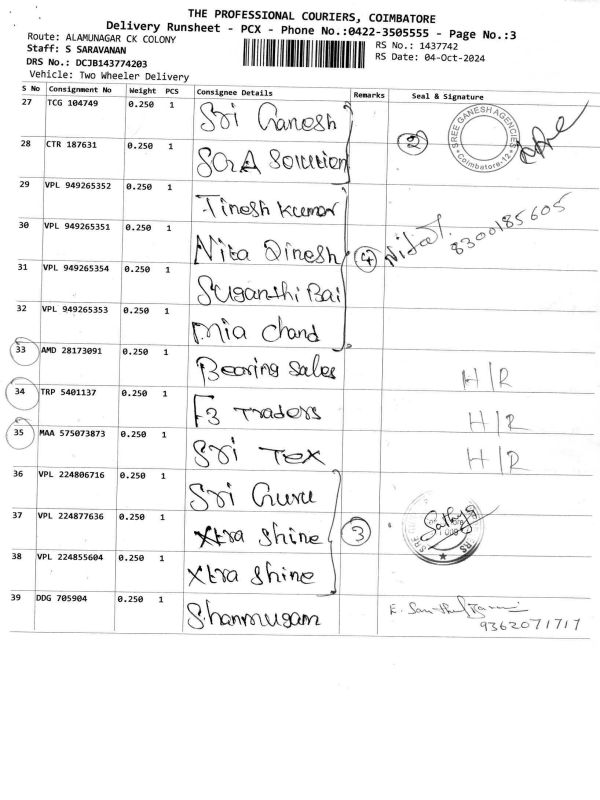 THE PROFESSIONAL COURIERS, COIMBATORE
Delivery Runsheet - PCX - Phone No.:0422-3505555 - Page No.:3
Route: ALAMUNAGAR CK COLONY
RS No.: 1437742
Staff: S SARAVANAN
RS Date: 04-Oct-2024
DRS No.: DCJB143774203
Vehicle: Two Wheeler Delivery
S No Consignment No Weight PCS Consignee Details Remarks Seal & Signature
27 TCG 104749 0.250 1 Sri Ganesh
SREE GANESH AGENCIES Coimbatore-12
28 CTR 187631 0.250 1 Solution 2
29 VPL 949265352 0.250 1 Jinesh Kumar
30 VPL 949265351 0.250 1 Nita Dinesh 4 8300185605
31 VPL 949265354 0.250 1 Suganthi Bai
32 VPL 949265353 0.250 1 Mia chand
33 AMD 28173091 0.250 1 Bearing Sales H/R
34 TRP 5401137 0.250 1 F3 Traders H/R
35 MAA 575073873 0.250 1 Sri Tex H/R
36 VPL 224806716 0.250 1 Sri Guru
37 VPL 224877636 0.250 1 Xtra Shine 3 Sathya
38 VPL 224855604 0.250 1 Xtra Shine
39 DDG 705904 0.250 1 Shanmugam
9362071717